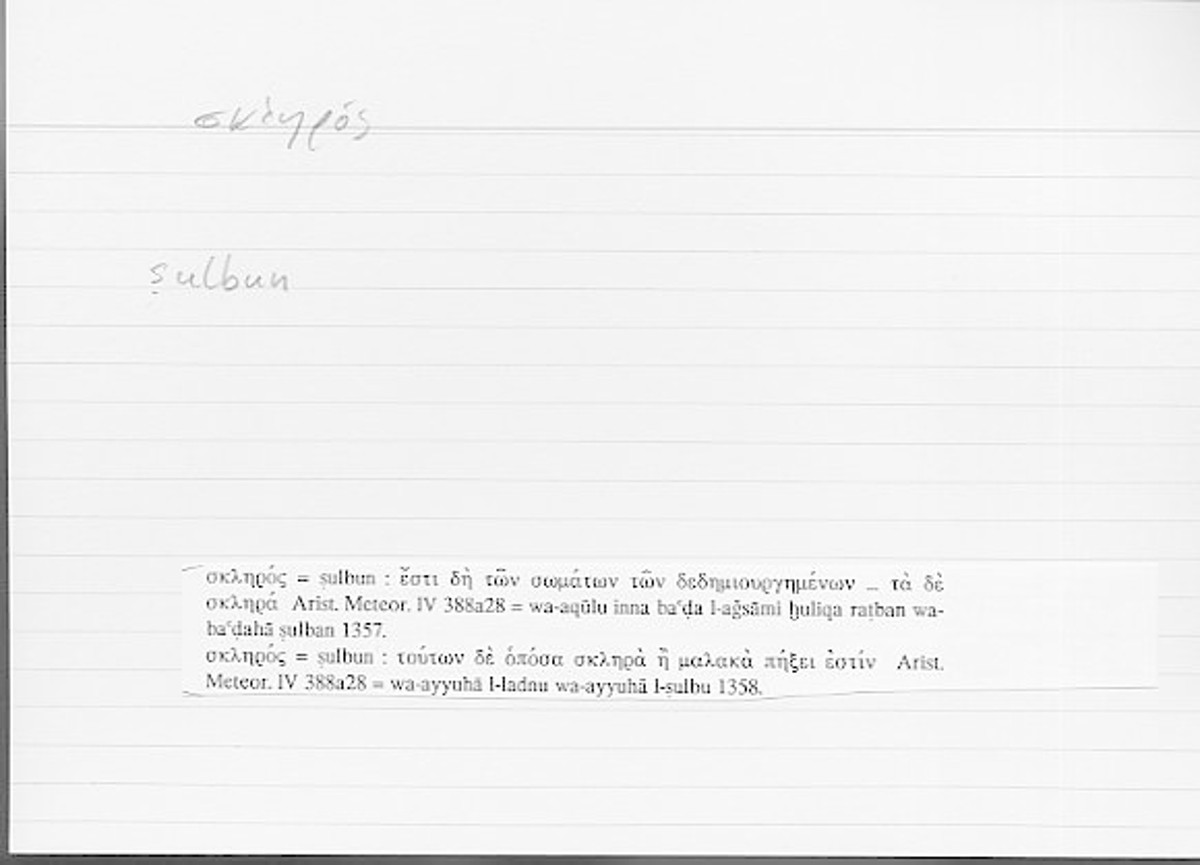 σκληρός
ṣulbun
σκληρός = ṣulbun : ἔστι δὴ τῶν σωμάτων τῶν δεδημιουργημένων _ τὰ δὲ
σκληρά Arist. Meteor. IV 388a28 = wa-aqūlu inna baʿḍa l-aǧsāmi ḫuliqa raṭban wa-
baʿḍahā ṣulban 1357.
σκληρός = ṣulbun : τούτων δὲ ὁπόσα σκληρὰ ἢ μαλακὰ πήξει ἐστίν Arist.
Meteor. IV 388a28 = wa-ayyuhā l-ladnu wa-ayyuhā l-ṣulbu 1358.